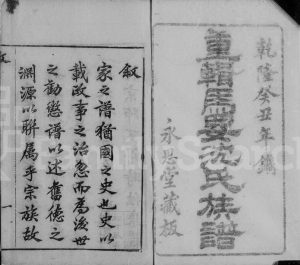 乾隆癸丑年鐫
重輯馬要沈氏族譜
永思堂藏板
敘
家之譜猶國之史也史以
載政事之治忽而為後世
之勸懲譜以述舊德之
淵源以聯屬乎宗族故